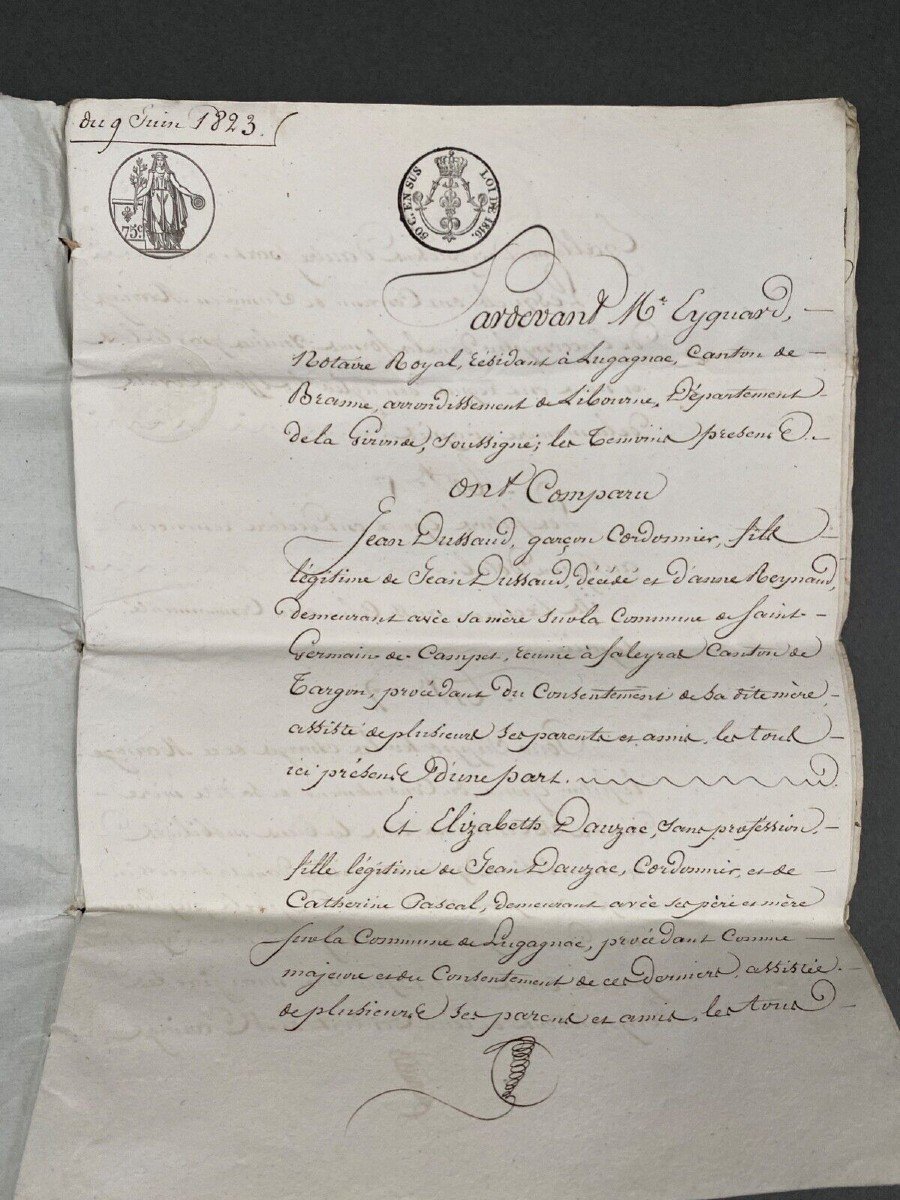 du 9 Juin 1823.
75c
50 C. EN SUS LOI DE 1816.
Pardevant Me. Eyquard,
Notaire Royal, résidant à Lugagnac, Canton de
Branne, arrondissement de Libourne, Département
de la Gironde, soussigné; les temoins present.
ont Comparu
Jean Dussaud, garçon Cordonnier, fils
légitime de Jean Dussaud, décédé et d'anne Reynaud,
demeurant avéc sa mère sur la Commune de Saint-
Germain de Campet, reunie à faleyrat Canton de
Targon, procédant du Consentement de sa dite mère,
assisté de plusieurs ses parents et amis, les tous
ici présens d'une part.
Et Elizabeth Dauzac, sans profession,
fille légitime de Jean Dauzac, Cordonnier, et de
Catherine Pascal, demeurant avéc ses péré et mère
sur la Commune de Lugagnac, procédant Comme
majeure et du Consentement de ces derniers, assistée
de plusieurs ses parens et amis, les tous